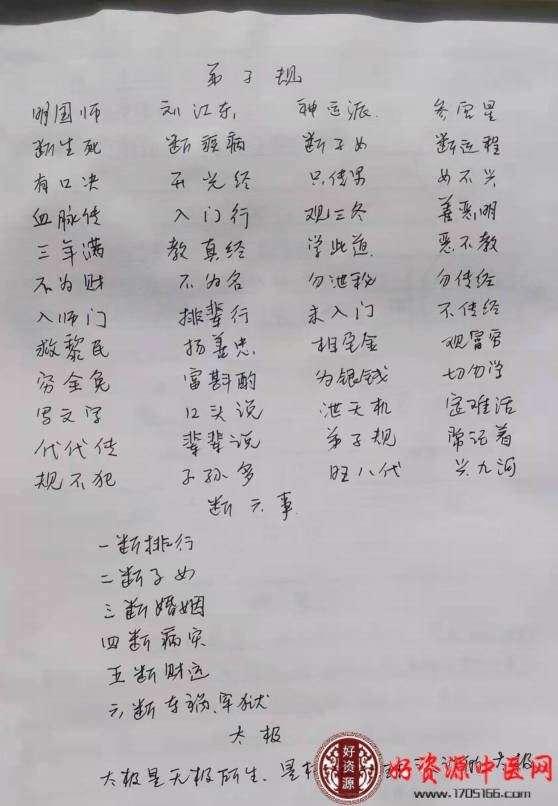 弟子规
明国师 刘江东 神运派 参宫星
断生死 断疾病 断子女 断运程
有口决 开光经 只传男 女不兴
血脉传 入门行 观三冬 善恶明
三年满 教真经 学此道 恶不教
不为财 不为名 勿泄秘 勿传经
入师门 排辈行 未入门 不传经
救黎民 扬善忠 相宅金 观富穷
穷全免 富斟酌 为银钱 切勿学
写文字 口头说 泄天机 定难活
代代传 辈辈说 弟子规 常记着
规不犯 子孙多 旺八代 兴九河
断六事
一断排行
二断子女
三断婚姻
四断病灾
五断财运
六断车祸、牢狱
太极
太极是无极所生、是 太极
好资源
好资源中医网
www.1705166.com